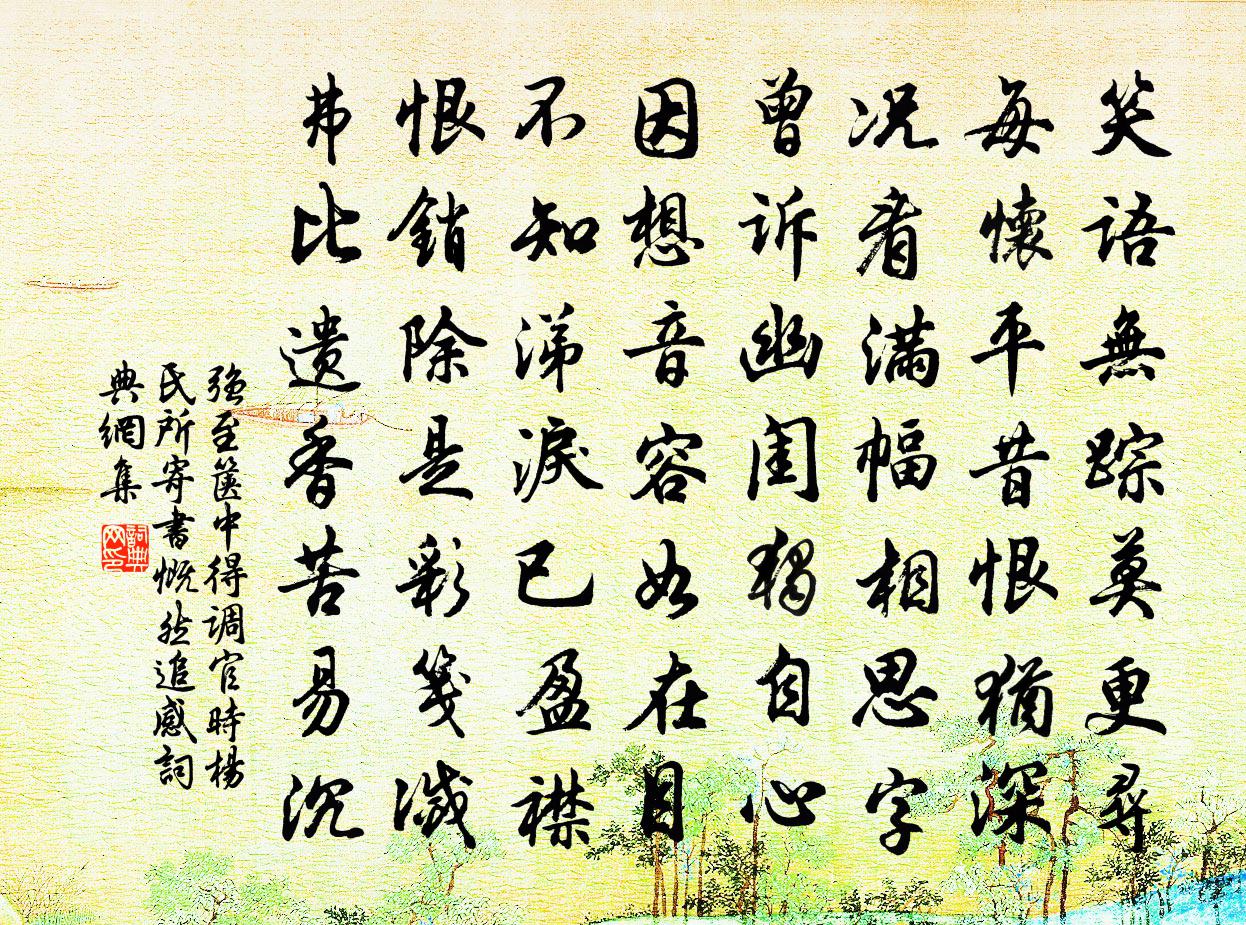 笑語無踪莫更尋
每懷平昔恨猶深
况看滿幅相思字
曾诉幽闺獨自心
因想音容如在目
不知涕淚已盈襟
恨銷除是彩箋滅
弗比遗香苦易沉
强至篋中得调官時楊
氏所寄書慨然追感詞
典網集
詞典网印